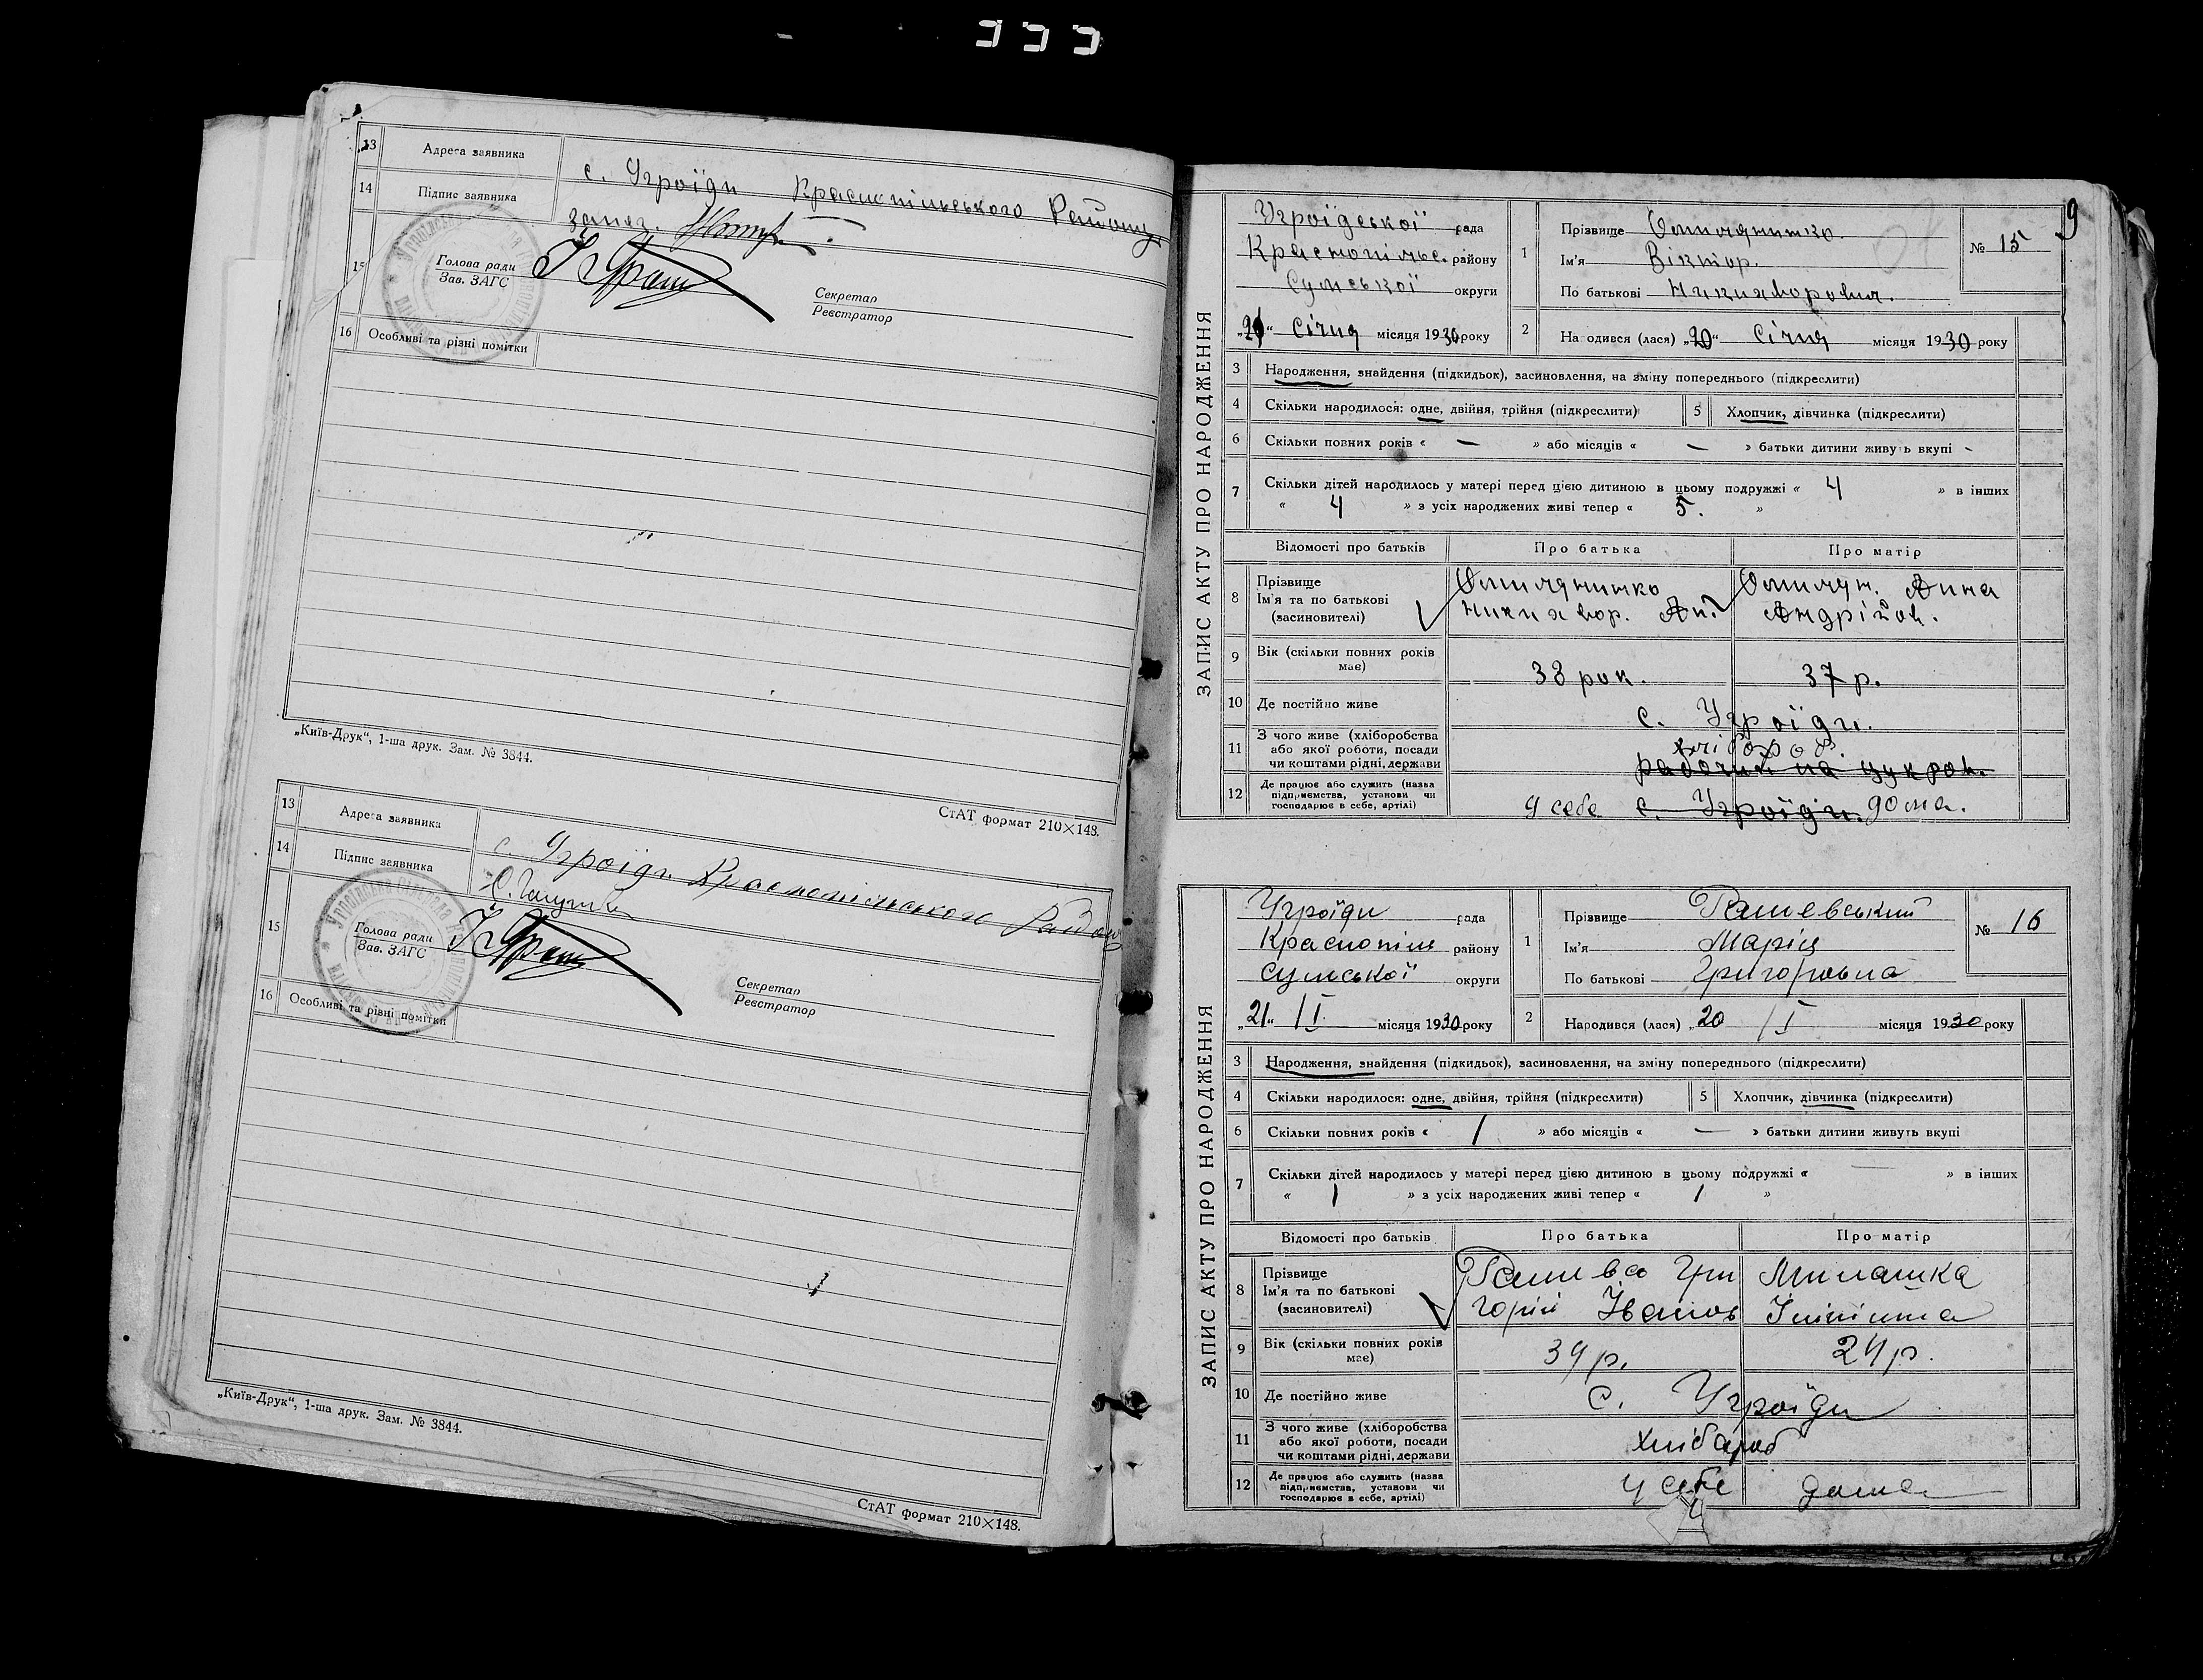 13 Адреса заявника
с. Угроїди Краснопільського Району
14 Підпис заявника
15 Голова ради
Зав. ЗАГС
Секретар
Реєстратор
16 Особливі та різні помітки
„Київ-Друк“, 1-ша друк. Зам. № 3844.
СтАТ формат 210×148.
13 Адреса заявника
с. Угроїди Краснопільського Району
14 Підпис заявника
15 Голова ради
Зав. ЗАГС
Секретар
Реєстратор
16 Особливі та різні помітки
„Київ-Друк“, 1-ша друк. Зам. № 3844.
СтАТ формат 210×148.
9
ЗАПИС АКТУ ПРО НАРОДЖЕННЯ
Угроїдської рада
Краснопільс. району
Сумської округи
Січня місяця 1930 року
1 Прізвище
Ім'я Віктор.
По батькові
№ 15
2 Народився (лася) „20“ Січня місяця 1930 року
3 Народження, знайдення (підкидьок), засиновлення, на зміну попереднього (підкреслити)
4 Скільки народилося: одне, двійня, трійня (підкреслити)
5 Хлопчик, дівчинка (підкреслити)
6 Скільки повних років « — » або місяців « — » батьки дитини живуть вкупі -
7 Скільки дітей народилось у матері перед цією дитиною в цьому подружжі « 4 » в інших
« 4 » з усіх народжених живі тепер « 5. »
Відомості про батьків Про батька Про матір
8 Прізвище
Ім'я та по батькові
(засиновителі)
Анна
Андріїов.
9 Вік (скільки повних років має) 38 рок. 37 р.
10 Де постійно живе с. Угроїди.
11 З чого живе (хліборобства
або якої роботи, посади
чи коштами рідні, держави
хлібороб.
рабочий на цукров.
12 Де працює або служить (назва
підприємства, установи чи
господарює в себе, артілі)
у себе с. Угроїди. дома.
ЗАПИС АКТУ ПРО НАРОДЖЕННЯ
Угроїди рада
Краснопіл району
Сумської округи
„21“ /I місяця 1930 року
1 Прізвище
Ім'я Марія
По батькові Григоровна
№ 16
2 Народився (лася) „20 /I місяця 1930 року
3 Народження, знайдення (підкидьок), засиновлення, на зміну попереднього (підкреслити)
4 Скільки народилося: одне, двійня, трійня (підкреслити)
5 Хлопчик, дівчинка (підкреслити)
6 Скільки повних років « / » або місяців « — » батьки дитини живуть вкупі
7 Скільки дітей народилось у матері перед цією дитиною в цьому подружжі « — » в інших
« 1 » з усіх народжених живі тепер « 1 »
Відомості про батьків Про батька Про матір
8 Прізвище
Ім'я та по батькові
(засиновителі)
Гри
горій Іванов
9 Вік (скільки повних років має) 24 р.
10 Де постійно живе с. Угроїди
11 З чого живе (хліборобства
або якої роботи, посади
чи коштами рідні, держави
хлібароб
12 Де працює або служить (назва
підприємства, установи чи
господарює в себе, артілі)
у себе дома